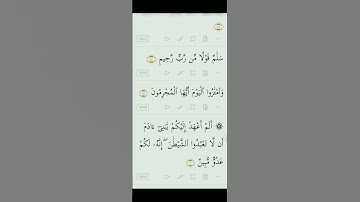 سَلَٰمٌ قَوْلًا مِّن رَّبٍّ رَّحِيمٍ
وَٱمْتَٰزُوا۟ ٱلْيَوْمَ أَيُّهَا ٱلْمُجْرِمُونَ
۞ أَلَمْ أَعْهَدْ إِلَيْكُمْ يَٰبَنِىٓ ءَادَمَ
أَن لَّا تَعْبُدُوا۟ ٱلشَّيْطَٰنَ ۖ إِنَّهُۥ لَكُمْ
عَدُوٌّ مُّبِينٌ